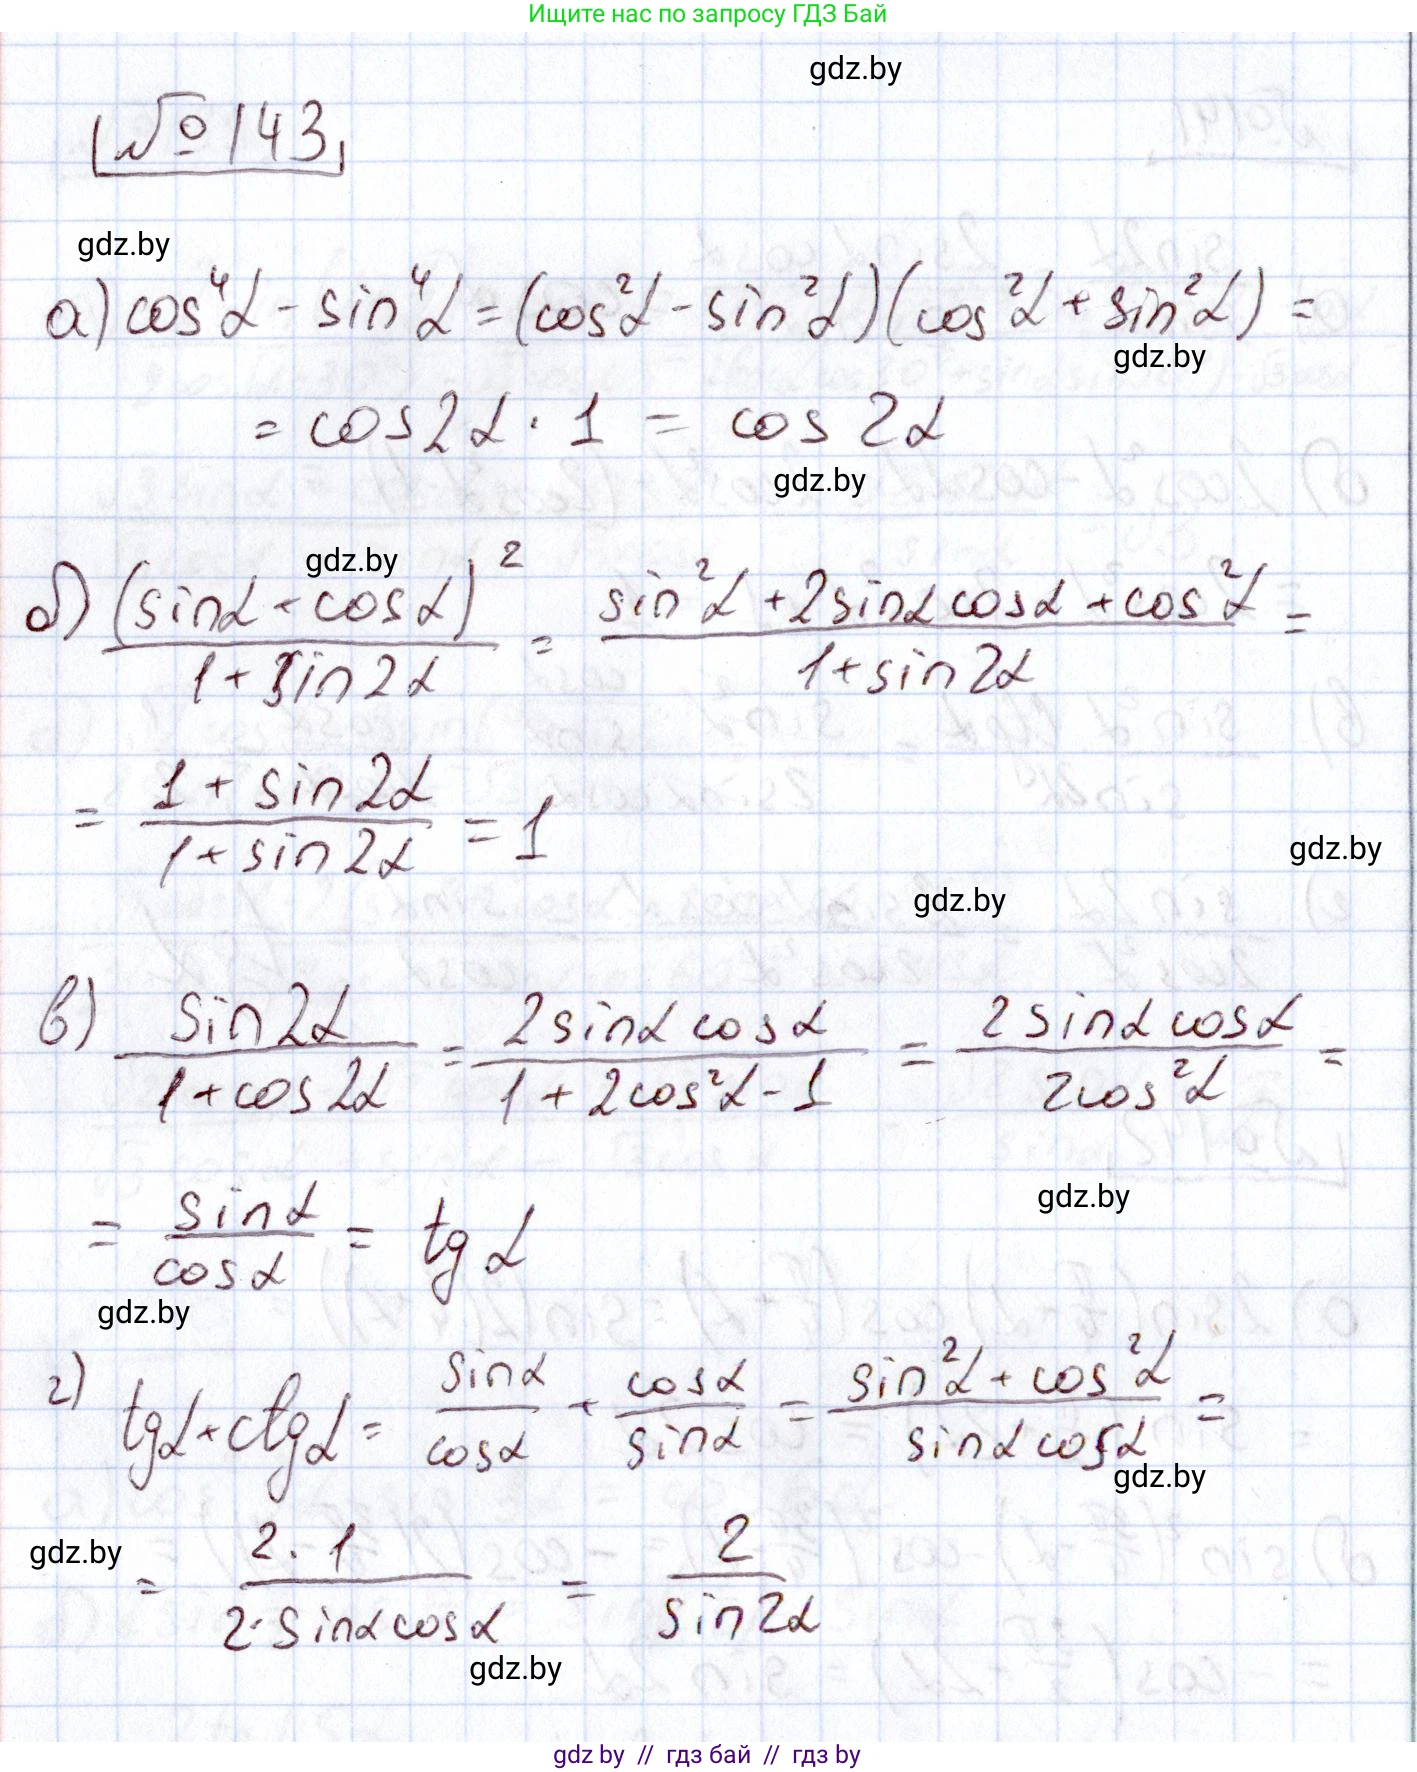 Ищите нас по запросу ГДЗ Бай
gdz.by
№143
gdz.by
а) cos⁴α - sin⁴α = (cos²α - sin²α)(cos²α + sin²α) =
gdz.by
= cos2α · 1 = cos 2α
gdz.by
gdz.by
б) (sinα + cosα)² / (1 + sin2α) = (sin²α + 2sinα cosα + cos²α) / (1 + sin2α) =
= (1 + sin2α) / (1 + sin2α) = 1
gdz.by
gdz.by
в) sin2α / (1 + cos2α) = 2sinα cosα / (1 + 2cos²α - 1) = 2sinα cosα / 2cos²α =
= sinα / cosα = tgα
gdz.by
gdz.by
г) tgα + ctgα = sinα / cosα + cosα / sinα = (sin²α + cos²α) / (sinα cosα) =
gdz.by
gdz.by
= 2·1 / (2·sinα cosα) = 2 / sin2α
gdz.by
gdz by // гдз бай // гдз by